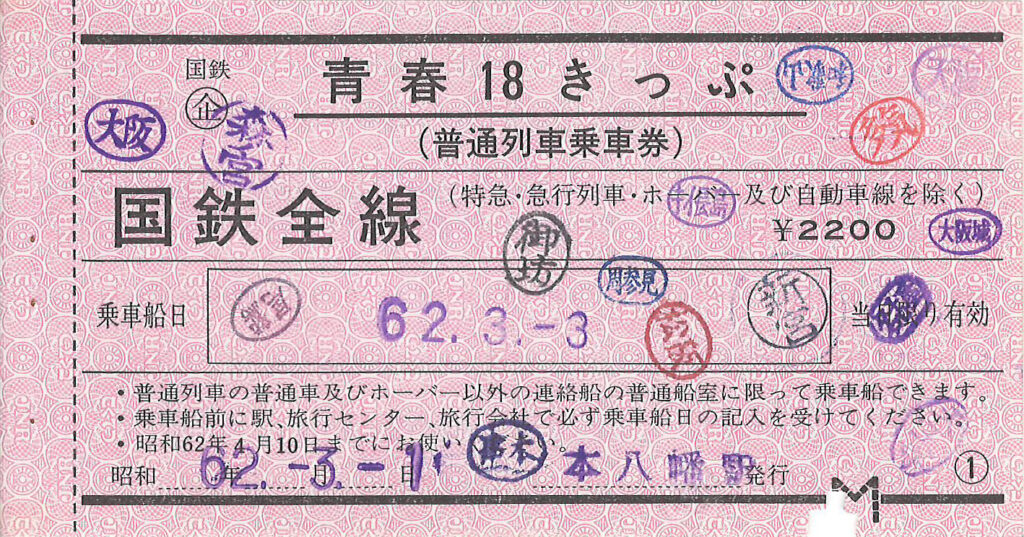 国鉄
企
青春18きっぷ
(普通列車乗車券)
大阪
国鉄全線
(特急・急行列車・ホーバー及び自動車線を除く)
¥2200
大阪城
御坊
周参見
乗車船日
62.3.-3
新宮
当日限り有効
・普通列車の普通車及びホーバー以外の連絡船の普通船室に限って乗車船できます。
・乗車船前に駅、旅行センター、旅行会社で必ず乗車船日の記入を受けてください。
・昭和62年4月10日までにお使いください。
串本
昭和 62年-3月-1日 本八幡駅発行
①